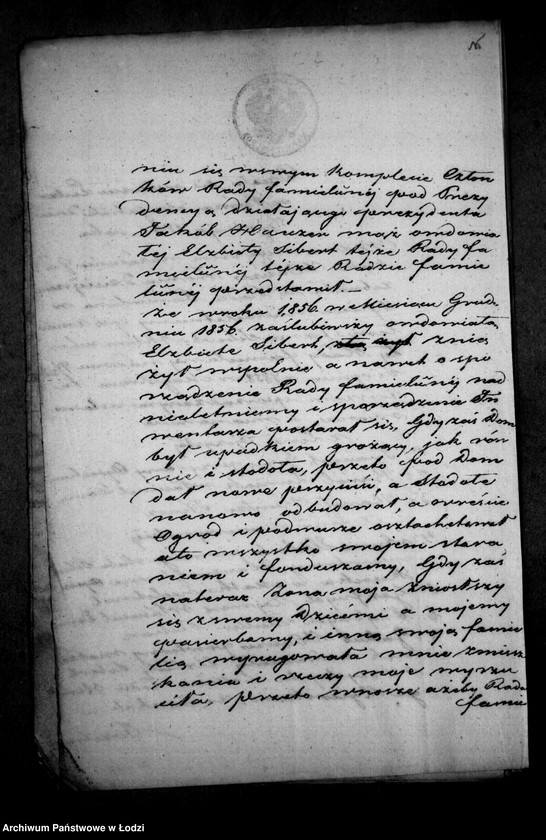 niu się w swym komplecie Człon
ków Rady familinéj pod Prezy
dencyą działającego prezydenta
Jakób Hauzer mąż owdowia
łéj Elzbiety Sibert téjże Rady fa
milinéj téjże Radzie fami
linéj przedstawił.—
Że w roku 1856. w Miesiącu Grud
niu 1856 zaślubiwszy owdowiałą
Elzbietę Sibert, z nią
żył wspólnie a nawet o spo
rządzenie Rady familinéj nad
nieletniemy i sporządzenie In
wentarza postarał się, Gdy zaś Dom
był upadkiem grożący, jak rów
nie i stodoła, przeto pod Dom
dał nowe przyciesi, a Stodołe
nanowo odbudował, a wreście
Ogród i podwurze osztachetował
a to wszystko swojem stara
niem i funduszamy, Gdy zaś
nateraz Żona moja zniosłszy
się z swemy Dziećmi a mojemy
pasierbamy, i inną swoją fami
lią wyrugowała mnie z miesz
kania i rzeczy moje wyrzu
ciła, przeto wnoszę ażeby Rada
fami
Archiwum Państwowe w Łodzi